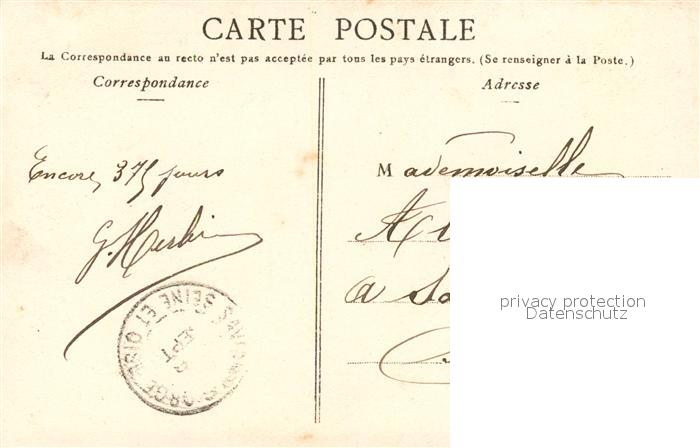 CARTE POSTALE
La Correspondance au recto n'est pas acceptée par tous les pays étrangers. (Se renseigner à la Poste.)
Correspondance
Adresse
Encore 375 jours
G. Herbin
Mademoiselle
A
a Sa
privacy protection
Datenschutz
SEINE ET OISE
SEPT
ORGE